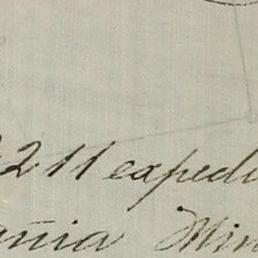 211 expedi
ania Min